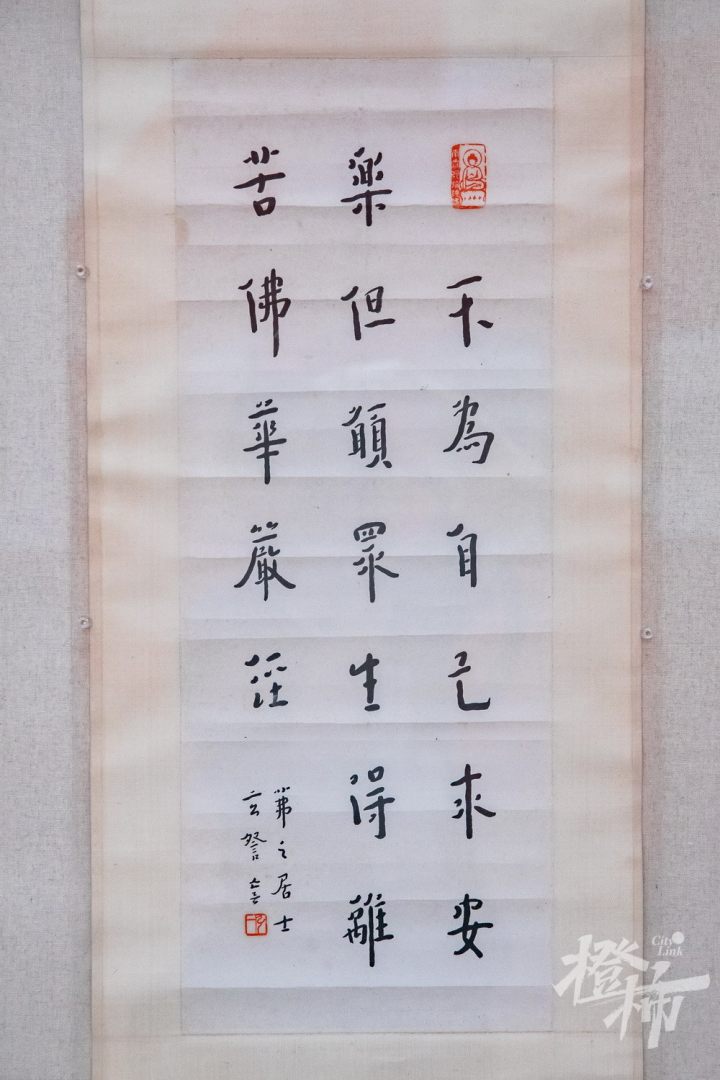 不為自己求安
樂但願眾生得離
苦佛華嚴經
茀之居士
City Link
橙柿